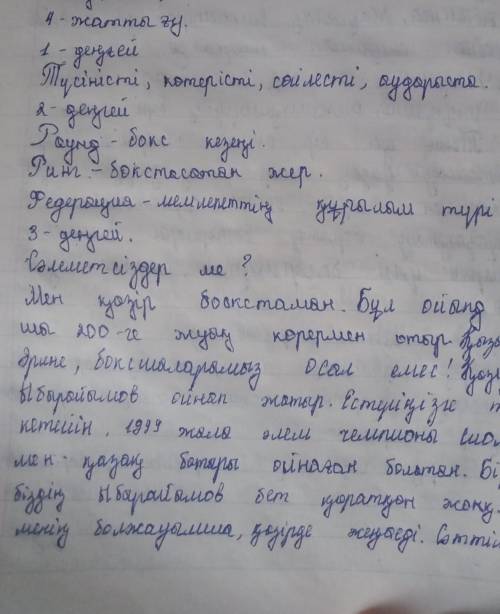 4 - жаттығу.
1 - деңгей
Түсіністі, көтерісті, сөйлесті, аударыста.
2 - деңгей
Раунд - бокс кезеңі.
Ринг - бокстасатан жер.
Федерация - мемлекеттің құрылым түрі
3 - деңгей.
Сәлеметсіздер ме?
Мен қазір бокстаман. Бұл ойынд
шы 200-ге жуық көрермен отыр. Қаза
әрине, боксшаларамыз осал емес! Қазі
Ыбырайымов ойнап жатыр. Естуіңізге т
кетейін, 1999 жала әлем чемпионы
мен қазақ батыры ойнаған болатан. Бі
біздің Ыбарайымов бет қаратқан жоқ.
менің болжауымша, қазірде жеңеді. Сәттіл